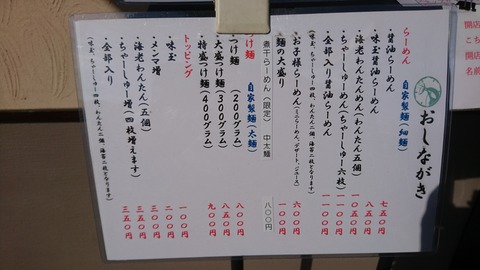 おしながき
らーめん 自家製麺(細麺)
・醤油らーめん 七五〇円
・味玉醤油らーめん 八五〇円
・海老わんたんめん(わんたん五個) 一〇五〇円
・ちゃーしゅーめん(ちゃーしゅー六枚) 一一〇〇円
・全部入り醤油らーめん 一一〇〇円
(味玉、ちゃーしゅー四枚、わんたん二個、海苔二枚となります)
・お子様らーめん(ミニらーめん、デザート、ジュース) 六〇〇円
・麺の大盛り 一〇〇円
煮干らーめん(限定) 中太麺 八〇〇円
つけ麺 自家製麺(太麺)
つけ麺(200グラム) 八〇〇円
大盛つけ麺(300グラム) 八五〇円
特盛つけ麺(400グラム) 九〇〇円
トッピング
・味玉 一〇〇円
・メンマ増 二〇〇円
・海老わんたん(五個) 三〇〇円
・ちゃーしゅー増(四枚増えます) 三五〇円
・全部入り 三五〇円
(味玉、ちゃーしゅー四枚、わんたん二個、海苔二枚となります)
開店
こち
開店
名前